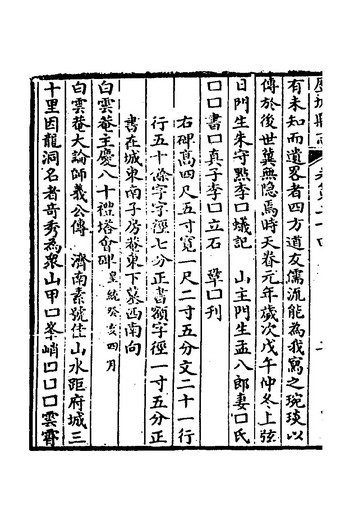 有未知而遺畧者四方道友儒流能為我寫之琬琰以
傳於後世冀無隐焉時天眷元年歲次戊午仲冬上弦
日門生朱守黙李口蟻記　山主門生孟八郎妻口氏
口口書口真子李口立石　鞏口刊
右碑高四尺五寸寬一尺二寸五分文二十一行
行五十餘字字徑七分正書額字徑一寸五分正
書在城東南子房菴東下墓西南向
白雲菴主慶八十禮塔會碑　皇統癸亥四月
白雲菴大論師義公傳　濟南素號佳山水距府城三
十里因龍洞名者奇秀為衆山甲口峯峭口口口雲霄